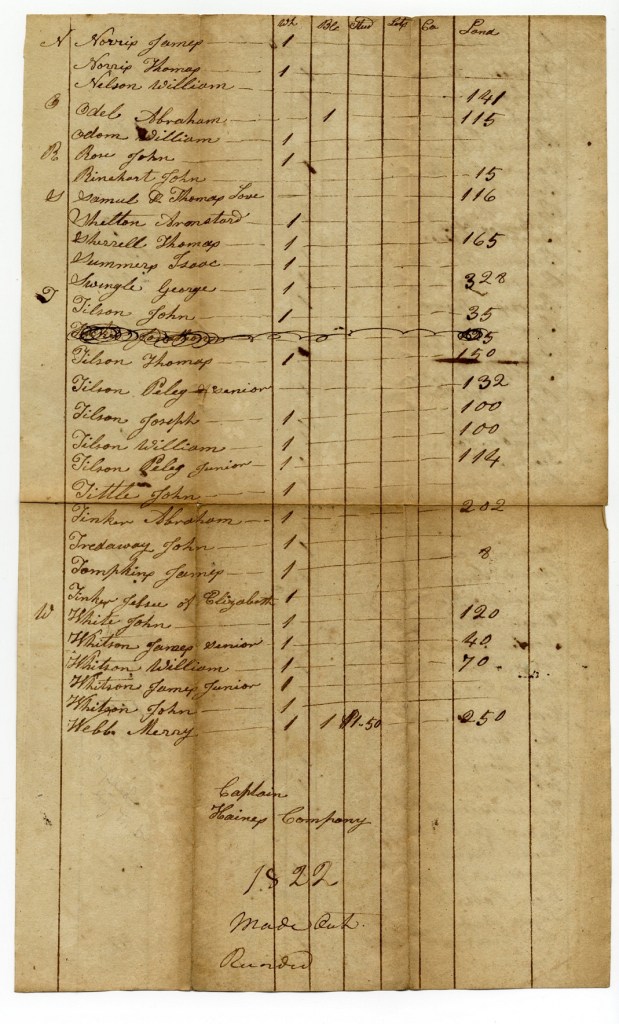 Wh Blc Stud Lots Ca Land
N Norris James 1
Norris Thomas 1
Nelson William 141
O Odel Abraham 1 115
Odom William 1
R Rose John 1
Rinehart John 15
S Samuel D Thomas Love 116
Shelton Armstard 1
Sherrell Thomas 1 165
Summers Isaac 1
Swingle George 1 328
T Tilson John 1 35
Tilson Thomas 1 150
Tilson Peleg Senior 132
100
Tilson Joseph 1 100
Tilson William 1
Tilson Peleg Junior 1 114
Tittle John 1
Tinker Abraham 1 202
Tredaway John 1
8
Tompkins James 1
Tinker of Elizabeth 1
W White John 1 120
Whitson James Senior 1 40
Whitson William 1 70
Whitson James Junior 1
Whitson John 1
Webb Merry 1 1 250
Captain
Haines Company
1822
Made Out